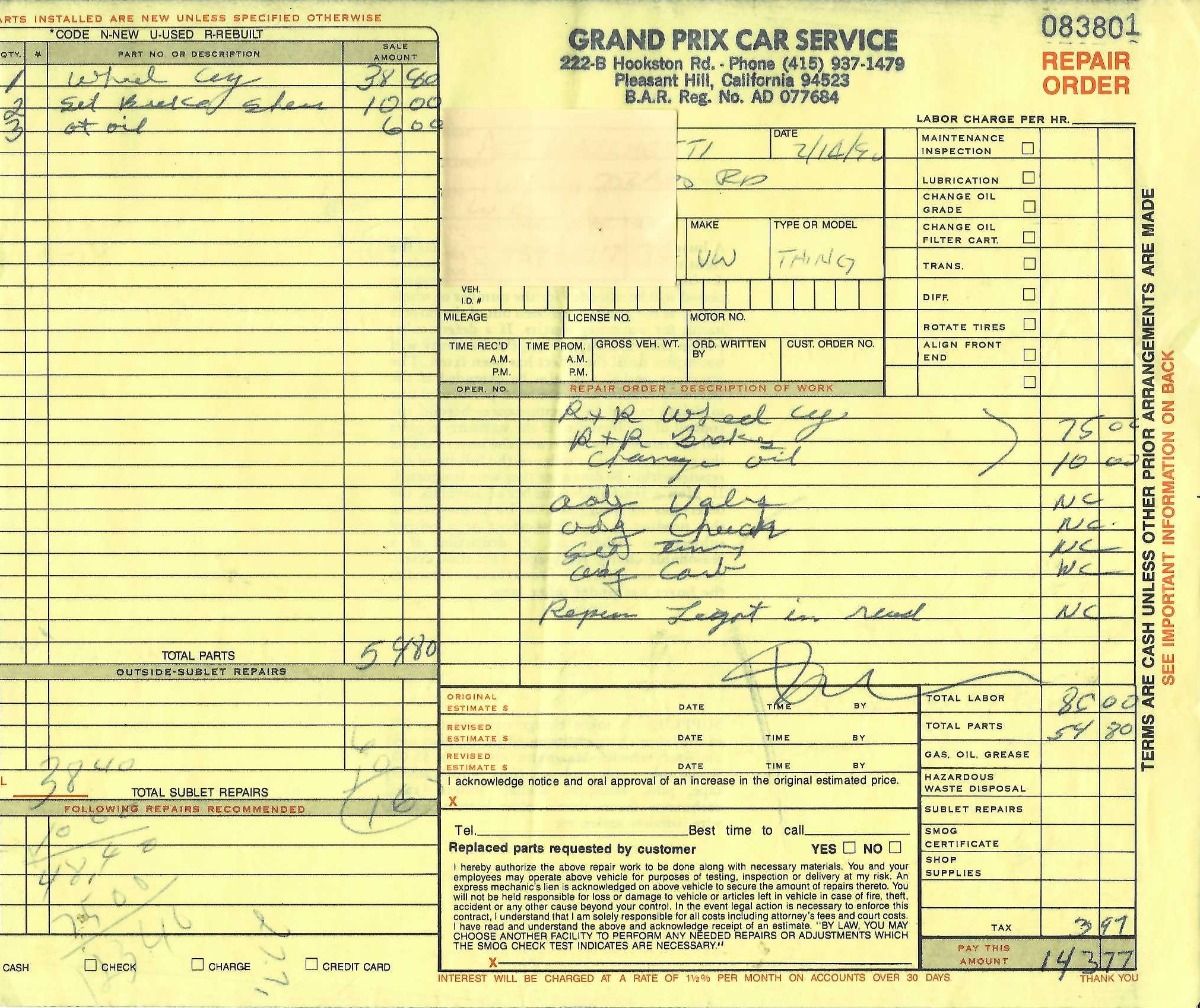 ARTS INSTALLED ARE NEW UNLESS SPECIFIED OTHERWISE
*CODE N-NEW U-USED R-REBUILT
QTY. * PART NO. OR DESCRIPTION SALE AMOUNT
1 Wheel Cy 38 80
2 Set Shoes 10 00
3 qt oil 6 00
TOTAL PARTS 54 80
OUTSIDE-SUBLET REPAIRS
L 3840
TOTAL SUBLET REPAIRS
FOLLOWING REPAIRS RECOMMENDED
CASH ☐ CHECK ☐ CHARGE ☐ CREDIT CARD
GRAND PRIX CAR SERVICE
222-B Hookston Rd. - Phone (415) 937-1479
Pleasant Hill, California 94523
B.A.R. Reg. No. AD 077684
083801
REPAIR
ORDER
LABOR CHARGE PER HR.
TTI
DATE
2/14/90
RD
MAKE
VW
TYPE OR MODEL
THING
VEH. I.D. #
MILEAGE LICENSE NO. MOTOR NO.
TIME REC'D A.M. P.M.
TIME PROM. A.M. P.M.
GROSS VEH. WT.
ORD. WRITTEN BY
CUST. ORDER NO.
MAINTENANCE INSPECTION ☐
LUBRICATION ☐
CHANGE OIL GRADE ☐
CHANGE OIL FILTER CART. ☐
TRANS. ☐
DIFF. ☐
ROTATE TIRES ☐
ALIGN FRONT END ☐
☐
OPER. NO. REPAIR ORDER - DESCRIPTION OF WORK
R+R Wheel Cy
R+R Brakes 75 00
Change oil 10 00
adj Valvs NC
adj Cluch NC.
Set Timing NC
adj Carb NC
Repair in NC
ORIGINAL ESTIMATE $ DATE TIME BY
REVISED ESTIMATE $ DATE TIME BY
REVISED ESTIMATE $ DATE TIME BY
I acknowledge notice and oral approval of an increase in the original estimated price.
X
Tel. Best time to call
Replaced parts requested by customer YES ☐ NO ☐
I hereby authorize the above repair work to be done along with necessary materials. You and your
employees may operate above vehicle for purposes of testing, inspection or delivery at my risk. An
express mechanic's lien is acknowledged on above vehicle to secure the amount of repairs thereto. You
will not be held responsible for loss or damage to vehicle or articles left in vehicle in case of fire, theft,
accident or any other cause beyond your control. In the event legal action is necessary to enforce this
contract, I understand that I am solely responsible for all costs including attorney's fees and court costs.
I have read and understand the above and acknowledge receipt of an estimate. "BY LAW, YOU MAY
CHOOSE ANOTHER FACILITY TO PERFORM ANY NEEDED REPAIRS OR ADJUSTMENTS WHICH
THE SMOG CHECK TEST INDICATES ARE NECESSARY."
X
TOTAL LABOR 85 00
TOTAL PARTS 54 80
GAS, OIL, GREASE
HAZARDOUS WASTE DISPOSAL
SUBLET REPAIRS
SMOG CERTIFICATE
SHOP SUPPLIES
TAX 3 97
PAY THIS AMOUNT 143 77
INTEREST WILL BE CHARGED AT A RATE OF 1½% PER MONTH ON ACCOUNTS OVER 30 DAYS THANK YOU
TERMS ARE CASH UNLESS OTHER PRIOR ARRANGEMENTS ARE MADE
SEE IMPORTANT INFORMATION ON BACK